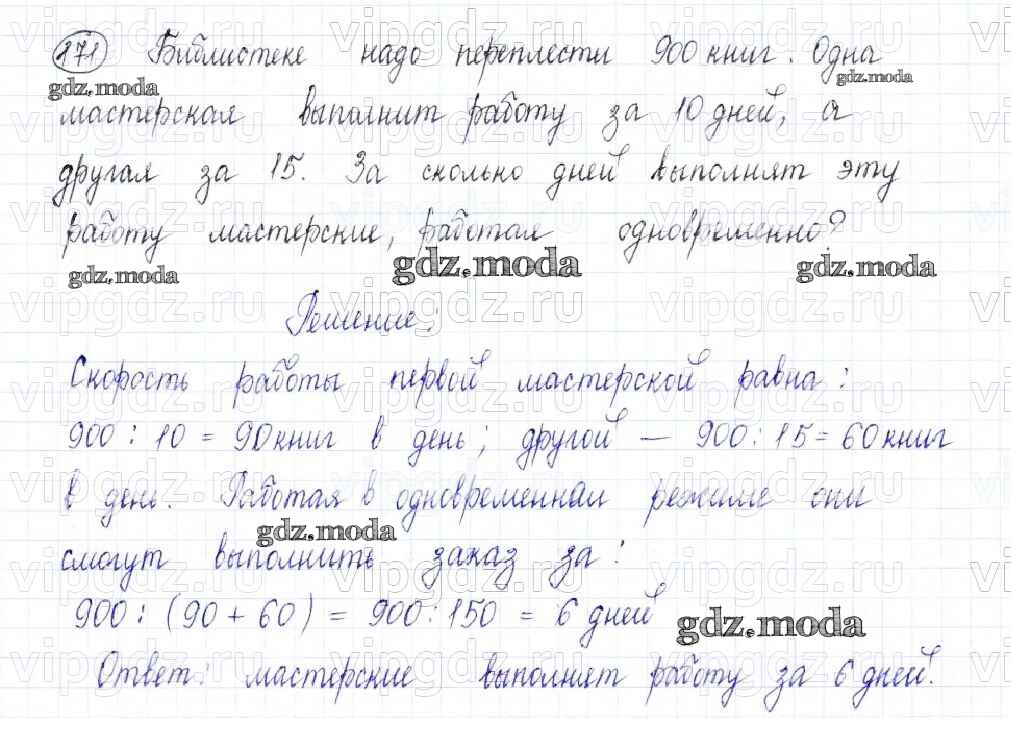 171 Библиотеке надо переплести 900 книг. Одна
мастерская выполнит работу за 10 дней, а
другая за 15. За сколько дней выполнят эту
работу мастерские, работая одновременно?
Решение:
Скорость работы первой мастерской равна:
900 : 10 = 90 книг в день; другой — 900 : 15 = 60 книг
в день. Работая в одновременном режиме они
смогут выполнить заказ за:
900 : (90 + 60) = 900 : 150 = 6 дней
Ответ: мастерские выполнят работу за 6 дней.
gdz.moda
vipgdz.ru